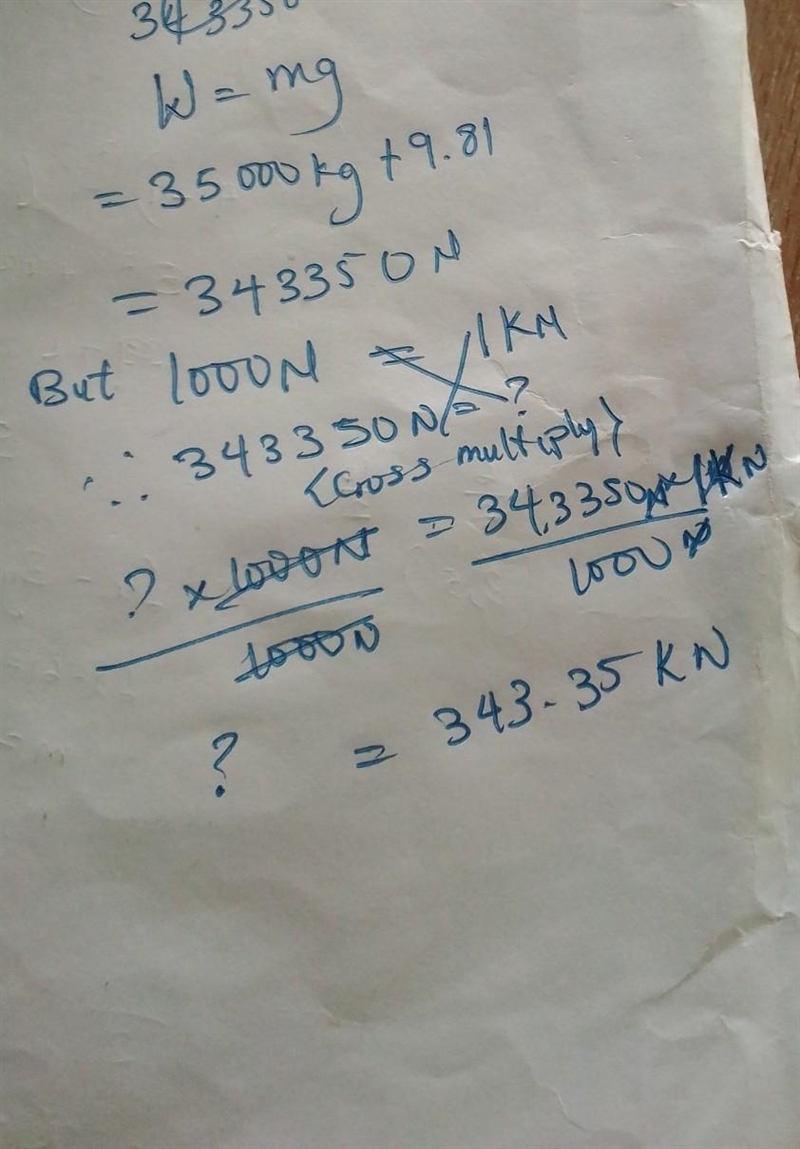 343350
W = mg
= 35000kg + 9.81
= 343350N
But 1000N = 1KN
∴ 343350N = ?
<Cross multiply>
? x 1000N = 343350N x 1KN
1000N 1000N
? = 343.35KN